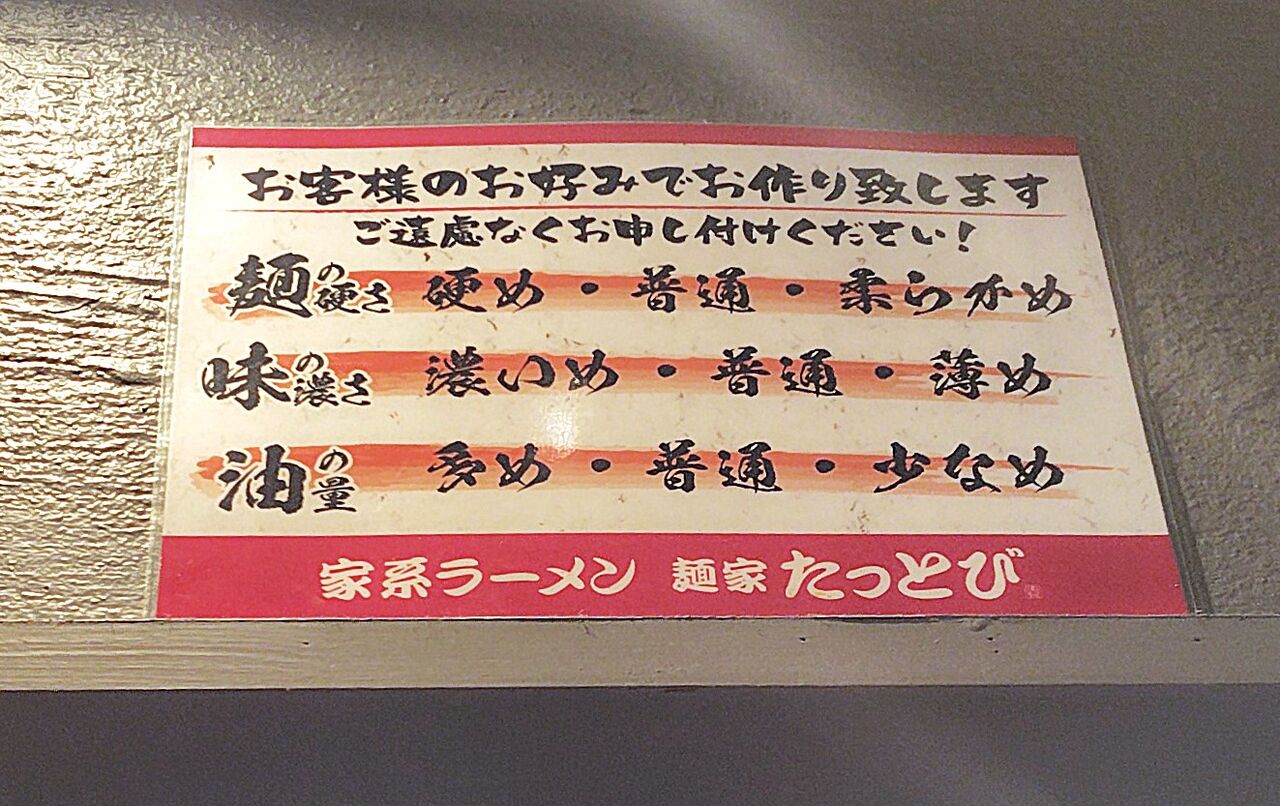 お客様のお好みでお作り致します
ご遠慮なくお申し付けください！
麺の硬さ 硬め・普通・柔らかめ
味の濃さ 濃いめ・普通・薄め
油の量 多め・普通・少なめ
家系ラーメン 麺家 たっとび